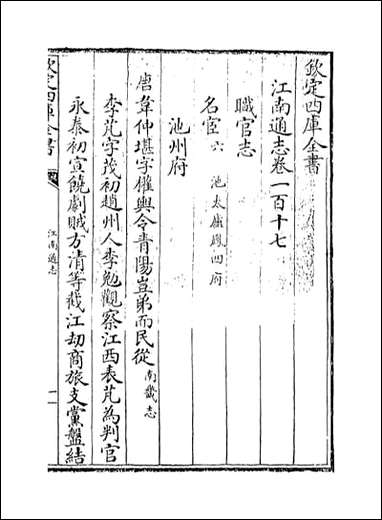 欽定四庫全書
江南通志卷一百十七
職官志
名宦六 池太廬鳳四府
池州府
唐韋仲堪字權輿令青陽豈弟而民從南畿志
李芃字茂初趙州人李勉觀察江西表芃為判官
永泰初宣饒劇賊方清等截江刧商旅支黨盤結
欽定四庫全書
江南通志
一